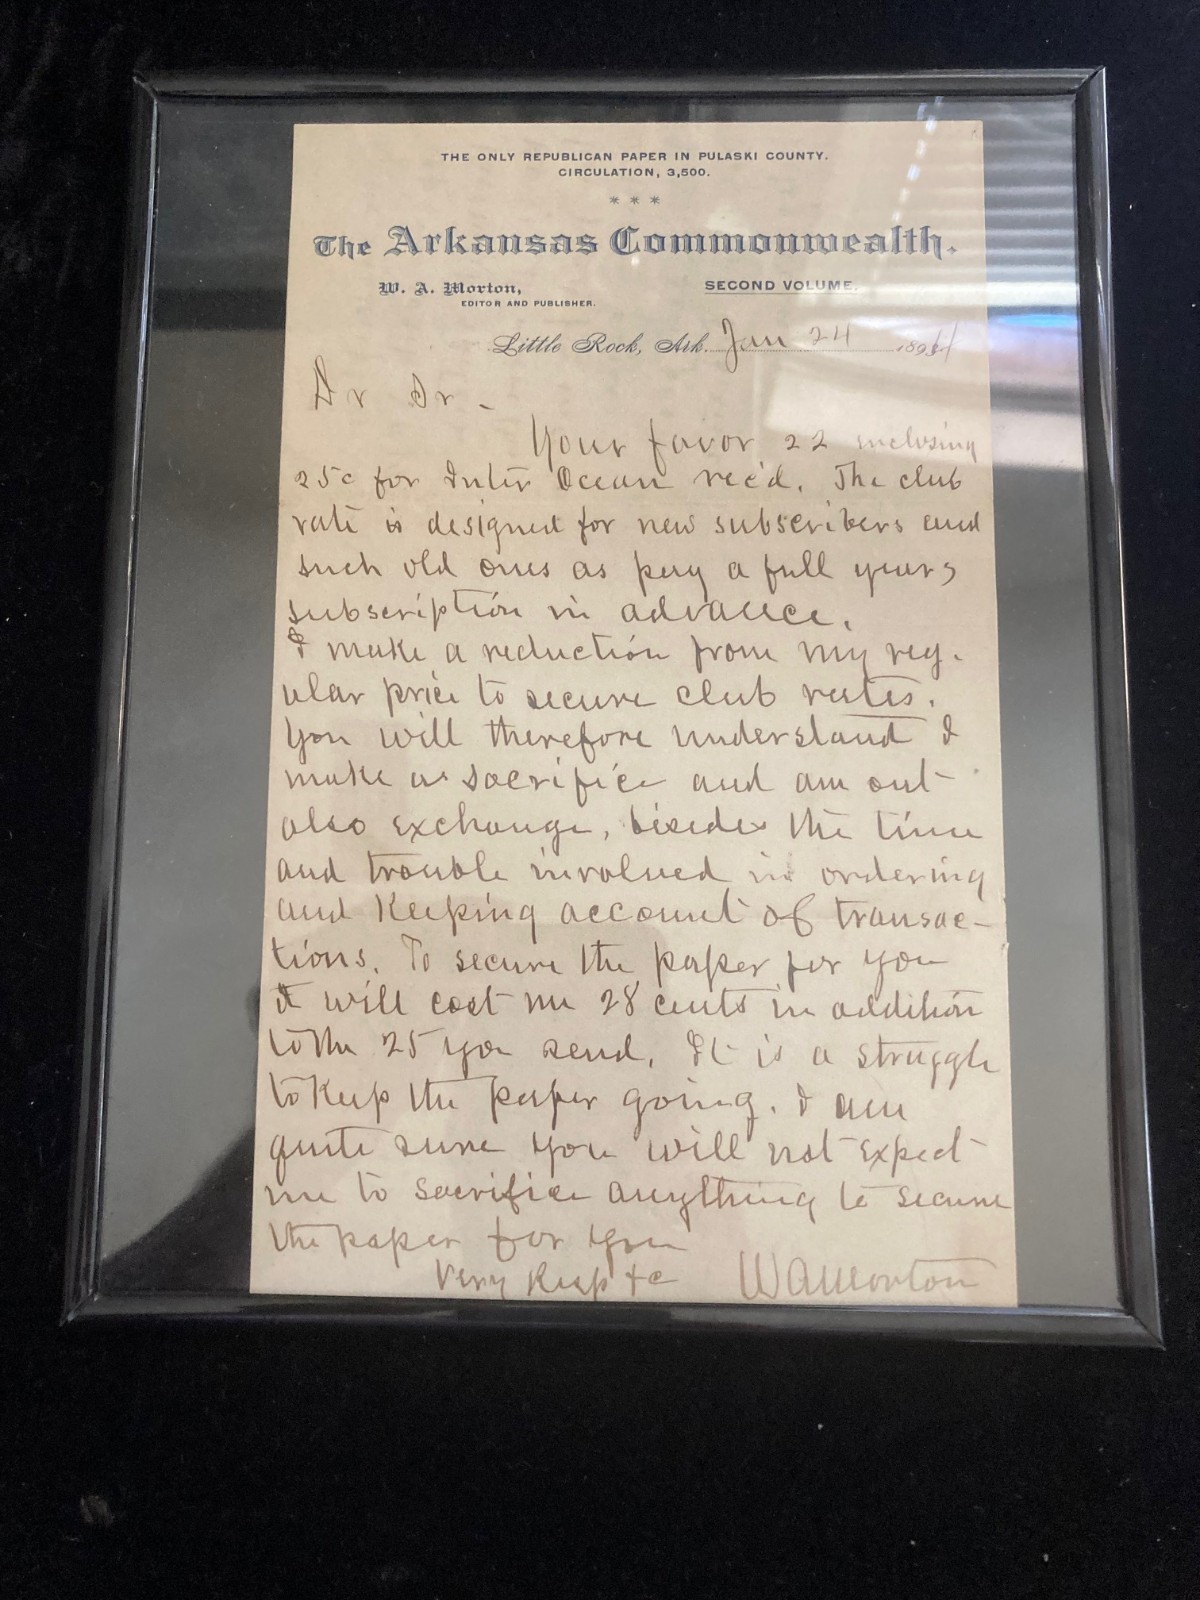 THE ONLY REPUBLICAN PAPER IN PULASKI COUNTY.
CIRCULATION, 3,500.
* * *
The Arkansas Commonwealth.
W. A. Morton,
EDITOR AND PUBLISHER.
SECOND VOLUME.
Little Rock, Ark. Jan 24 189
Dr Dr -
Your favor 22 inclosing
25c for Inter Ocean rec'd. The club
rate is designed for new subscribers and
such old ones as pay a full years
subscription in advance.
I make a reduction from my reg-
ular price to secure club rates.
You will therefore understand I
make a sacrifice and am out
also exchange, besides the time
and trouble involved in ordering
and keeping account of transac-
tions. To secure the paper for you
it will cost me 28 cents in addition
to the 25 you send. It is a struggle
to keep the paper going. I am
quite sure you will not expect
me to sacrifice anything to secure
the paper for you
Very Resp &c WAMorton